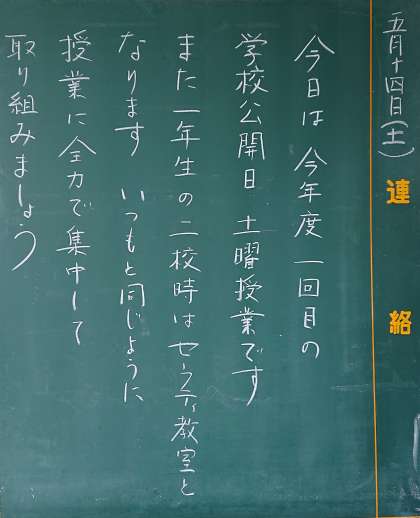 五月十四日(土)
連絡
今日は 今年度 一回目の
学校公開日 土曜授業です
また 一年生の二校時はセーフティ教室と
なります いつもと同じように
授業に全力で集中して
取り組みましょう